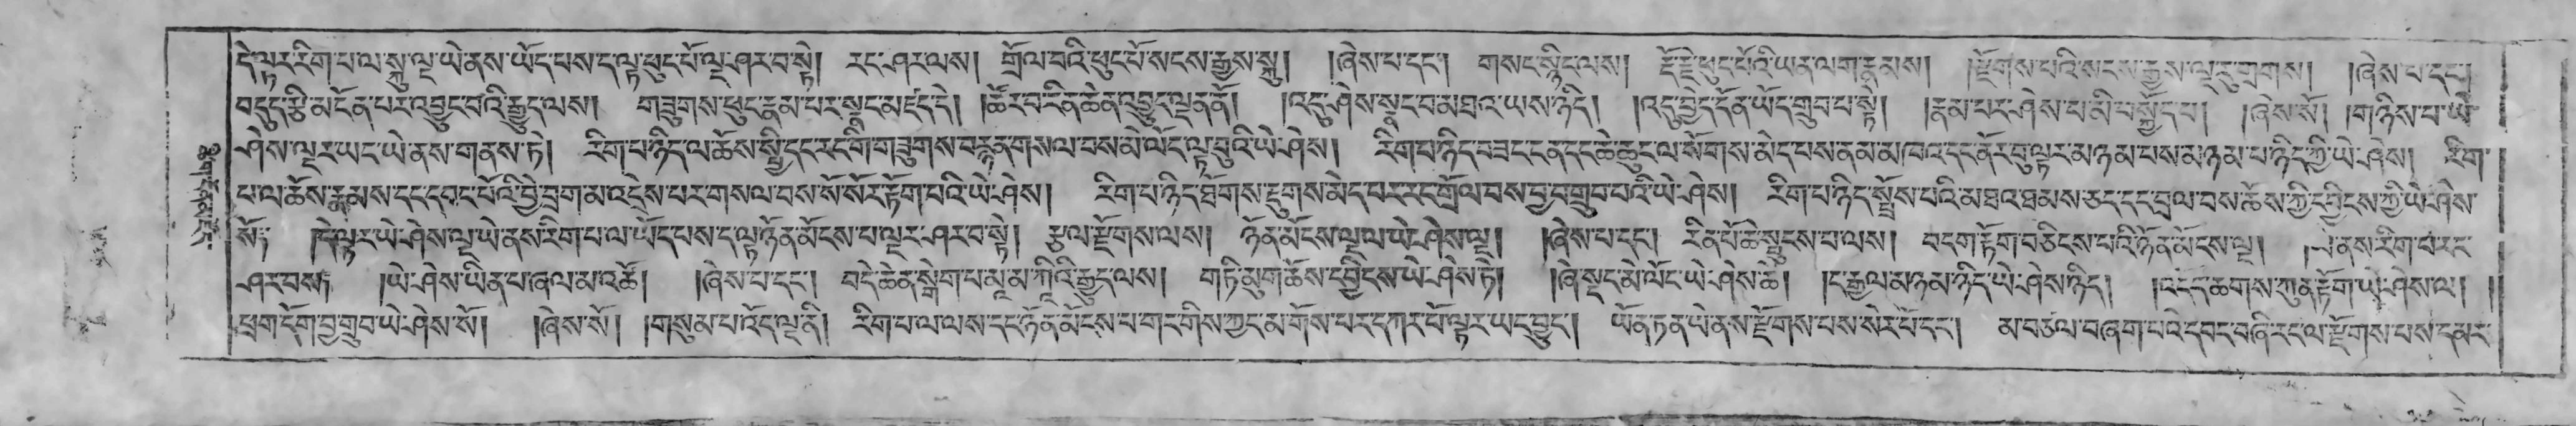 དེ་ལྟར་རིག་པ་ལ་སྐུ་ལྔ་ཡེ་ནས་ཡོད་པས་ད་ལྟ་ཕུང་པོ་ལྔར་ཤར་བ་སྟེ། རང་ཤར་ལས། གྲོལ་བའི་ཕུང་པོ་སངས་རྒྱས་སྐུ། །ཞེས་པ་དང་། གསང་སྙིང་ལས། རྡོ་རྗེ་ཕུང་པོའི་ཡན་ལག་རྣམས། །རྫོགས་པའི་སངས་རྒྱས་ལྔ་རུ་གྲགས། །ཞེས་པ་དང་།
བདུད་རྩི་མངོན་པར་འབྱུང་བའི་རྒྱུད་ལས། གཟུགས་ཕུང་རྣམ་པར་སྣང་མཛད་དེ། །ཚོར་བ་རིན་ཆེན་འབྱུང་ལྡན་ནོ། །འདུ་ཤེས་སྣང་བ་མཐའ་ཡས་ཉིད། །འདུ་བྱེད་དོན་ཡོད་གྲུབ་པ་སྟེ། །རྣམ་པར་ཤེས་པ་མི་བསྐྱོད་པ། །ཞེས་སོ། །གཉིས་པ་ཡེ་
ཤེས་ལྔར་ཡང་ཡེ་ནས་གནས་ཏེ། རིག་པ་ཉིད་ལ་ཆོས་སྤྱི་དང་རང་གི་གཟུགས་བརྙན་གསལ་བས་མེ་ལོང་ལྟ་བུའི་ཡེ་ཤེས། རིག་པ་ཉིད་བཟང་ངན་དང་ཆེ་ཆུང་ལ་སོགས་མེད་པས་ནམ་མཁའ་དང་ནོར་བུ་ལྟར་མཉམ་པས་མཉམ་པ་ཉིད་ཀྱི་ཡེ་ཤེས། རིག་
པ་ལ་ཆོས་རྣམས་དང་དབང་པོའི་བྱེ་བྲག་མ་འདྲེས་པར་གསལ་བས་སོ་སོར་རྟོག་པའི་ཡེ་ཤེས། རིག་པ་ཉིད་ཐོགས་རྡུགས་མེད་པར་རང་གྲོལ་བས་བྱ་བ་གྲུབ་པའི་ཡེ་ཤེས། རིག་པ་ཉིད་སྤྲོས་པའི་མཐའ་ཐམས་ཅད་དང་བྲལ་བས་ཆོས་ཀྱི་དབྱིངས་ཀྱི་ཡེ་ཤེས་
སོ༔ །དེ་ལྟར་ཡེ་ཤེས་ལྔ་ཡེ་ནས་རིག་པ་ལ་ཡོད་པས་ད་ལྟ་ཉོན་མོངས་པ་ལྔར་ཤར་བ་སྟེ། རྩལ་རྫོགས་ལས། ཉོན་མོངས་ལྔ་ལ་ཡེ་ཤེས་ལྔ། །ཞེས་པ་དང་། རིན་པོ་ཆེ་སྤུངས་པ་ལས། བདག་རྟོག་བཅིངས་པའི་ཉོན་མོངས་ལྔ། །ཡེ་ནས་རིག་པ་རང་
ཤར་བས༔ །ཡེ་ཤེས་ཡིན་པ་ཞལ་མ་འཚོ། །ཞེས་པ་དང་། བདེ་ཆེན་སྒེག་པ་མཱ་མ་ཀཱིའི་རྒྱུད་ལས། གཏི་མུག་ཆོས་དབྱིངས་ཡེ་ཤེས་ཏེ། །ཞེ་སྡང་མེ་ལོང་ཡེ་ཤེས་ཆེ། །ང་རྒྱལ་མཉམ་ཉིད་ཡེ་ཤེས་ཉིད། །འདོད་ཆགས་ཀུན་རྟོག་ཡེ་ཤེས་ལ། །
ཕྲག་དོག་བྱ་གྲུབ་ཡེ་ཤེས་སོ། །ཞེས་སོ། །གསུམ་པ་འོད་ལྔ་ནི། རིག་པ་ལ་ལས་དང་ཉོན་མོངས་པ་གང་གིས་ཀྱང་མ་གོས་པར་དཀར་པོ་ལྟར་ཡང་བྱུང་། ཡོན་ཏན་ཡེ་ནས་རྫོགས་པས་སེར་པོ་དང་། མ་བཙལ་བཞག་པའི་དབང་བཞི་རང་ལ་རྫོགས་པས་དམར་